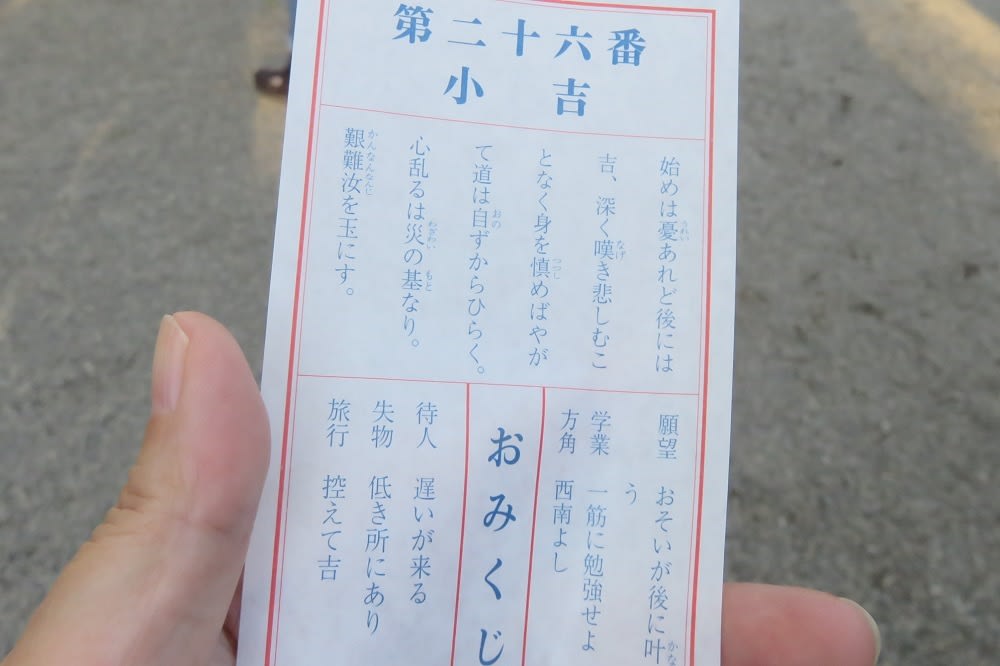 第二十六番
小吉
始めは憂あれど後には
吉、深く嘆き悲しむこ
となく身を慎めばやが
て道は自ずからひらく。
心乱るは災の基なり。
艱難汝を玉にす。
願望 おそいが後に叶
う
学業 一筋に勉強せよ
方角 西南よし
おみくじ
待人 遅いが来る
失物 低き所にあり
旅行 控えて吉